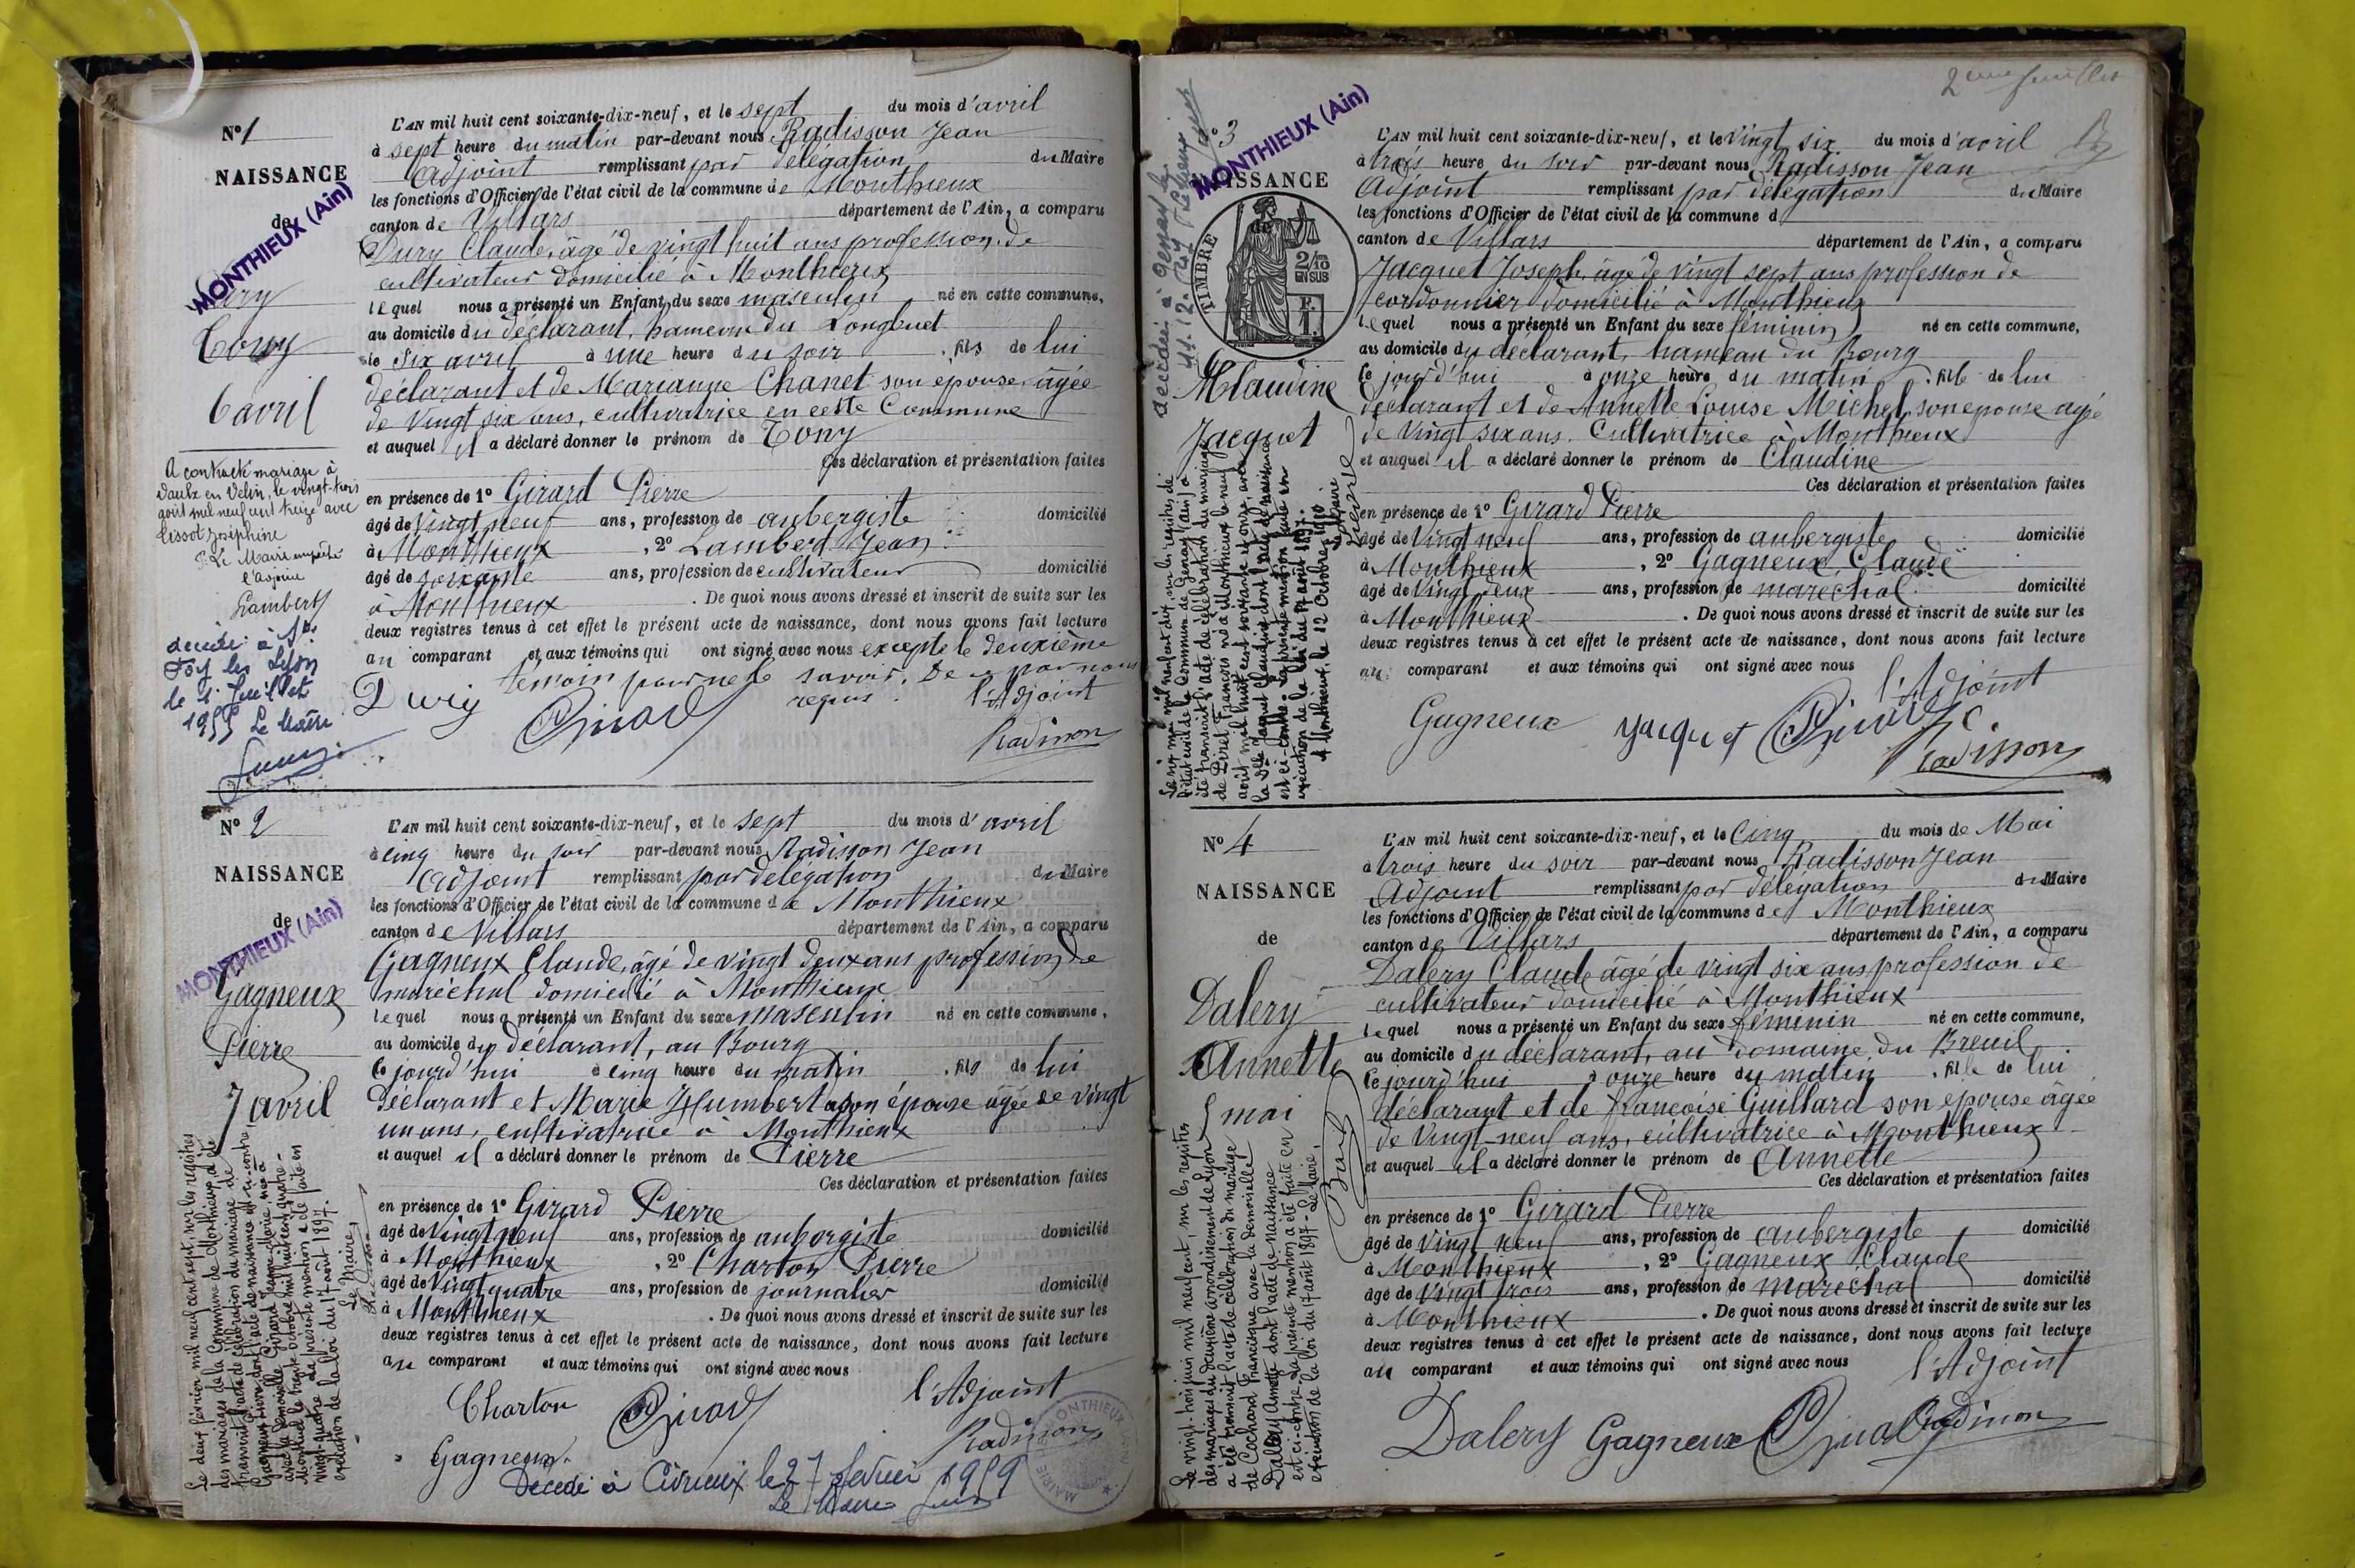 N° 1
NAISSANCE
de
MONTHIEUX (Ain)
Dury
Tony
6 avril
A contracté mariage à
Vaulx en Velin, le vingt-trois
août mil neuf cent treize avec
Lissot Joséphine
P. Le Maire empêché
l'adjoint
Lambert
décédé à Ste
Foy les Lyon
le 1 Juillet
1955 Le Maire
L'AN mil huit cent soixante-dix-neuf, et le sept du mois d'avril
à sept heure du matin par-devant nous Radisson Jean
Adjoint remplissant par délégation du Maire
les fonctions d'Officier de l'état civil de la commune de Monthieux
canton de Villars département de l'Ain, a comparu
Dury Claude, âgé de vingt huit ans profession de
cultivateur domicilié à Monthieux
lequel nous a présenté un Enfant du sexe masculin né en cette commune,
au domicile du déclarant, hameau du Longbuet
le six avril à une heure du soir . fils de lui
déclarant et de Marianne Chanet son épouse, âgée
de Vingt six ans, cultivatrice en cette Commune
et auquel il a déclaré donner le prénom de Tony
Ces déclaration et présentation faites
en présence de 1° Girard Pierre
âgé de Vingt neuf ans, profession de aubergiste domicilié
à Monthieux , 2° Lamberd Jean
âgé de soixante ans, profession de cultivateur domicilié
à Monthieux . De quoi nous avons dressé et inscrit de suite sur les
deux registres tenus à cet effet le présent acte de naissance, dont nous avons fait lecture
au comparant et aux témoins qui ont signé avec nous excepté le deuxième
témoin pour ne le savoir. De par nous
requis. l'Adjoint
Dury Girard Radisson
N° 2
NAISSANCE
de
MONTHIEUX (Ain)
Gagneux
Pierre
7 avril
Le deux février mil neuf cent sept, sur les registres
des mariages de la Commune de Monthieux a été
transcrit l'acte de célébration du mariage de
Gagneux Pierre dont l'acte de naissance est ci-contre,
avec la demoiselle Girard Jeanne Marie née à
Montluel le trente octobre mil huit cent quatre-
vingt-quatre. La présente mention a été faite en
exécution de la loi du 17 août 1897.
Le Maire,
L'AN mil huit cent soixante-dix-neuf, et le sept du mois d'avril
à cinq heure du soir par-devant nous Radisson Jean
Adjoint remplissant par délégation du Maire
les fonctions d'Officier de l'état civil de la commune de Monthieux
canton de Villars département de l'Ain, a comparu
Gagneux Claude, âgé de vingt deux ans profession de
maréchal domicilié à Monthieux
lequel nous a présenté un Enfant du sexe masculin né en cette commune,
au domicile du déclarant, au Bourg
ce jourd'hui à cinq heure du matin . fils de lui
déclarant et Marie Humbert son épouse âgée de vingt
un ans, cultivatrice à Monthieux
et auquel il a déclaré donner le prénom de Pierre
Ces déclaration et présentation faites
en présence de 1° Girard Pierre
âgé de Vingt neuf ans, profession de aubergiste domicilié
à Monthieux , 2° Charton Pierre
âgé de Vingt quatre ans, profession de journalier domicilié
à Monthieux . De quoi nous avons dressé et inscrit de suite sur les
deux registres tenus à cet effet le présent acte de naissance, dont nous avons fait lecture
au comparant et aux témoins qui ont signé avec nous
Charton Girard l'Adjoint
Gagneux Radisson
Décédé à Civrieux le 27 février 1959
Le Maire
2eme feuillet
N° 3
MONTHIEUX (Ain)
NAISSANCE
de
TIMBRE
2/10 EN SUS
F. 1.
Claudine
Jacquet
décédée à Genay le
Le six mai mil neuf cent dix, sur les registres de
l'état civil de la commune de Genay (Ain) a
été transcrit l'acte de célébration du mariage
de Perret François né à Monthieux le neuf
août mil huit cent soixante et onze, avec
la dlle Jacquet Claudine dont l'acte de naissance
est ci-contre. La présente mention faite en
exécution de la loi du 17 août 1897.
A Monthieux, le 12 Octobre 1910
Le Maire
L'AN mil huit cent soixante-dix-neuf, et le Vingt six du mois d'avril
à trois heure du soir par-devant nous Radisson Jean
Adjoint remplissant par délégation du Maire
les fonctions d'Officier de l'état civil de la commune d
canton de Villars département de l'Ain, a comparu
Jacquet Joseph, âgé de vingt sept ans profession de
cordonnier domicilié à Monthieux
lequel nous a présenté un Enfant du sexe féminin né en cette commune,
au domicile du déclarant, hameau du Bourg
ce jourd'hui à onze heure du matin . fille de lui
déclarant et de Annette Louise Michel, son épouse agée
de Vingt six ans. Cultivatrice à Monthieux
et auquel il a déclaré donner le prénom de Claudine
Ces déclaration et présentation faites
en présence de 1° Girard Pierre
âgé de Vingt neuf ans, profession de aubergiste domicilié
à Monthieux , 2° Gagneux, Claude
âgé de Vingt deux ans, profession de maréchal domicilié
à Monthieux . De quoi nous avons dressé et inscrit de suite sur les
deux registres tenus à cet effet le présent acte de naissance, dont nous avons fait lecture
au comparant et aux témoins qui ont signé avec nous
l'Adjoint
Gagneux Jacquet Girard
Radisson
N° 4
NAISSANCE
de
Dalery
Annette
5 mai
Le vingt-trois juin mil neuf cent, sur les registres
des mariages du deuxième arrondissement de Lyon
a été transcrit l'acte de célébration du mariage
de Cochard Francisque avec la demoiselle
Dalery Annette dont l'acte de naissance
est ci-contre. La présente mention a été faite en
exécution de la loi du 17 août 1897 - Le Maire,
L'AN mil huit cent soixante-dix-neuf, et le Cinq du mois de Mai
à trois heure du soir par-devant nous Radisson Jean
Adjoint remplissant par délégation du Maire
les fonctions d'Officier de l'état civil de la commune de Monthieux
canton de Villars département de l'Ain, a comparu
Dalery Claude âgé de vingt six ans profession de
cultivateur domicilié à Monthieux
lequel nous a présenté un Enfant du sexe féminin né en cette commune,
au domicile du déclarant, au domaine du Breuil
ce jourd'hui à onze heure du matin . fille de lui
déclarant et de françoise Guillard son épouse âgée
de Vingt-neuf ans, cultivatrice à Monthieux
et auquel il a déclaré donner le prénom de Annette
Ces déclaration et présentation faites
en présence de 1° Girard Pierre
âgé de Vingt neuf ans, profession de aubergiste domicilié
à Monthieux , 2° Gagneux Claude
âgé de Vingt trois ans, profession de maréchal domicilié
à Monthieux . De quoi nous avons dressé et inscrit de suite sur les
deux registres tenus à cet effet le présent acte de naissance, dont nous avons fait lecture
au comparant et aux témoins qui ont signé avec nous l'Adjoint
Dalery Gagneux Girard Radisson